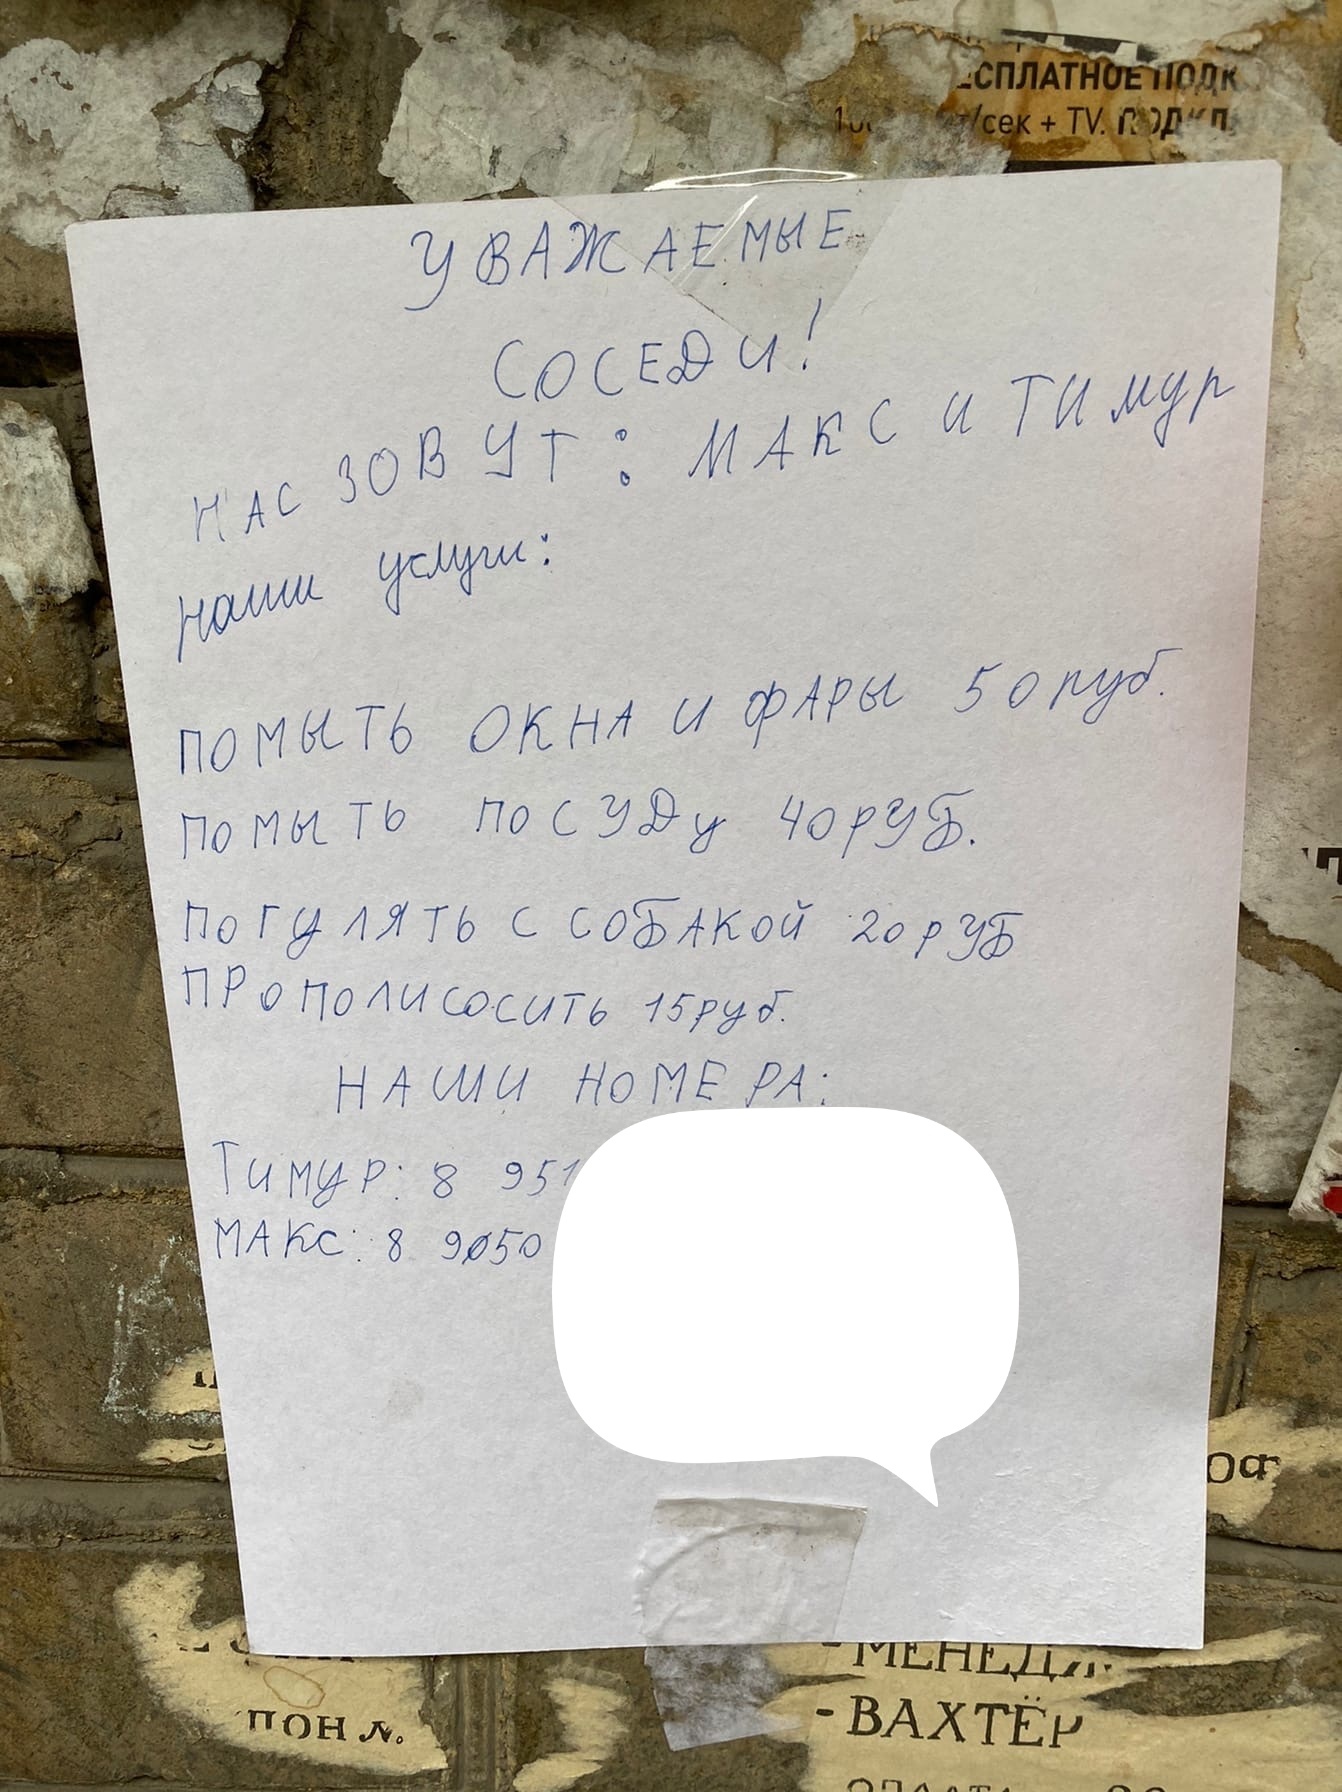 ЕСПЛАТНОЕ ПОДК
/сек + TV. ПОДКЛ
УВАЖАЕМЫЕ
СОСЕДИ!
НАС ЗОВУТ: МАКС И ТИМУР
наши услуги:
ПОМЫТЬ ОКНА И ФАРЫ 50 руб.
ПОМЫТЬ ПОСУДУ 40 РУБ.
ПОГУЛЯТЬ С СОБАКОЙ 20 РУБ
ПРОПОЛИСОСИТЬ 15 руб.
НАШИ НОМЕРА:
ТИМУР: 8 951
МАКС: 8 9050
ОФ
- МЕНЕДЖ
ПОН Л.
- ВАХТЁР